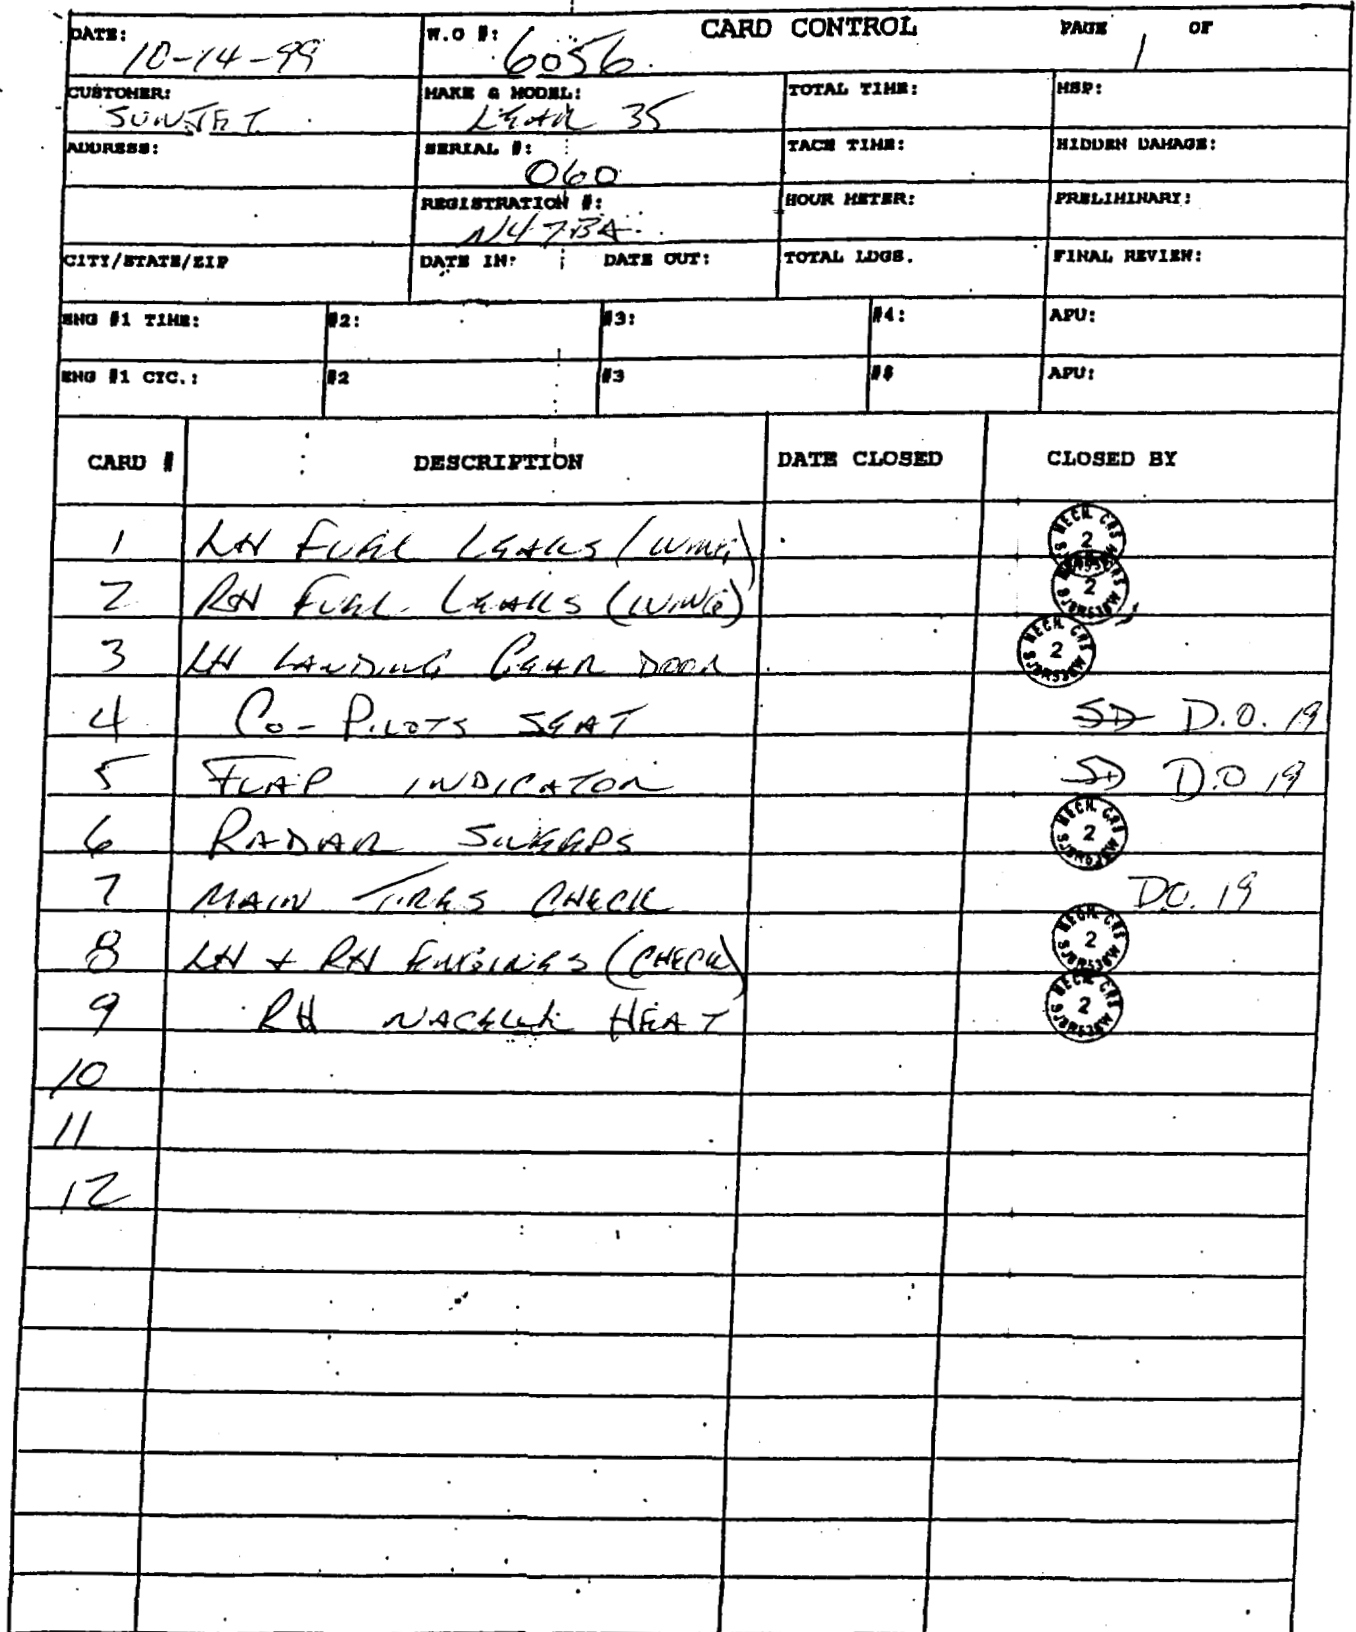 DATE: W.O #: CARD CONTROL PAGE OF
10-14-99 6056 1
CUSTOMER: MAKE & MODEL: TOTAL TIME: HSP:
SUNJET LEAR 35
ADDRESS: SERIAL #: TACH TIME: HIDDEN DAMAGE:
060
REGISTRATION #: HOUR METER: PRELIMINARY:
N47BA
CITY/STATE/ZIP DATE IN: DATE OUT: TOTAL LDGS. FINAL REVIEW:
ENG #1 TIME: #2: #3: #4: APU:
ENG #1 CYC.: #2 #3 #$ APU:
CARD # DESCRIPTION DATE CLOSED CLOSED BY
1 LH FUEL LEAKS (WING) MECH. CRS 2
2 RH FUEL LEAKS (WING) 2
3 LH LANDING GEAR DOOR MECH. CRS 2
4 CO-PILOTS SEAT SD D.O. 19
5 FLAP INDICATOR SD D.O 19
6 RADAR SWEEPS MECH. CRS 2
7 MAIN TIRES CHECK D.O. 19
8 LH + RH ENGINES (CHECK) MECH. CRS 2
9 RH NACELLE HEAT MECH. CRS 2
10
11
12